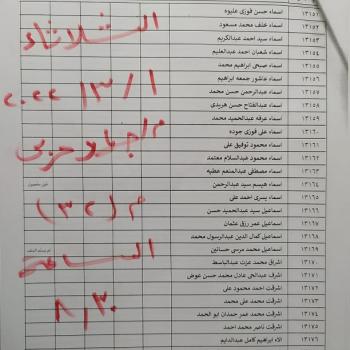 ١٣١٥١ اسماء حسن فوزى عليوه
١٣١٥٢ اسماء خلف محمد مسعود
١٣١٥٣ اسماء سيد احمد عبدالكريم
١٣١٥٤ اسماء شعبان احمد عبدالعليم
١٣١٥٥ اسماء صبحى ابراهيم محمد
١٣١٥٦ اسماء عاشور جمعه ابراهيم
١٣١٥٧ اسماء عبدالرحمن حسن محمد
١٣١٥٨ اسماء عبدالفتاح حسن هريدى
١٣١٥٩ اسماء عرفه عبدالحميد محمد
١٣١٦٠ اسماء على فوزى جوده
١٣١٦١ اسماء محمود توفيق على
١٣١٦٢ اسماء محمود عبدالسلام معتمد
١٣١٦٣ اسماء مصطفى عبدالمنعم عطيه
١٣١٦٤ اسماء هيسم سيد عبدالرحمن
١٣١٦٥ اسماء يسرى احمد على
١٣١٦٦ اسماعيل سيد عبدالحميد حسن
١٣١٦٧ اسماعيل عمر رزق عثمان
١٣١٦٨ اسماعيل كمال الدين عبدالرسول محمد
١٣١٦٩ اسماعيل محمد مرسى حسانين
١٣١٧٠ اشراق محمد عزت عبدالباسط
١٣١٧١ اشرف عبدالحى عادل محمد حسن عوض
١٣١٧٢ اشرقت احمد محمود على
١٣١٧٣ اشرقت على محمد
١٣١٧٤ اشرقت محمد عمر حمدان ابو الحمد
١٣١٧٥ اشرقت ناصر محمد احمد
١٣١٧٦ الاء ابراهيم كامل عبدالدايم
الثلاثاء
١/٣/٢٠٢٢
م(٣٢)
الساعة
٨,٣٠